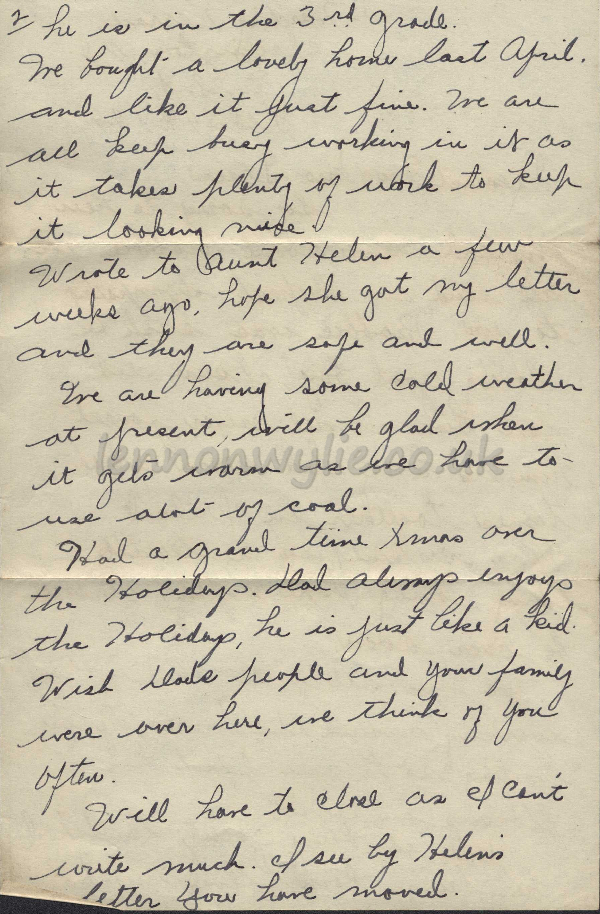 2 he is in the 3rd grade.
We bought a lovely home last April.
and like it just fine. We are
all keep busy working in it as
it takes plenty of work to keep
it looking nice.
Wrote to Aunt Helen a few
weeks ago, hope she got my letter
and they are safe and well.
We are having some cold weather
at present, will be glad when
it gets warm as we have to
use alot of coal.
Had a grand time Xmas over
the Holidays. Dad always enjoys
the Holidays, he is just like a kid.
Wish Dads people and your family
were over here, we think of you
often.
Will have to close as I can't
write much. I see by Helen's
letter you have moved.
lennonwylie.co.uk